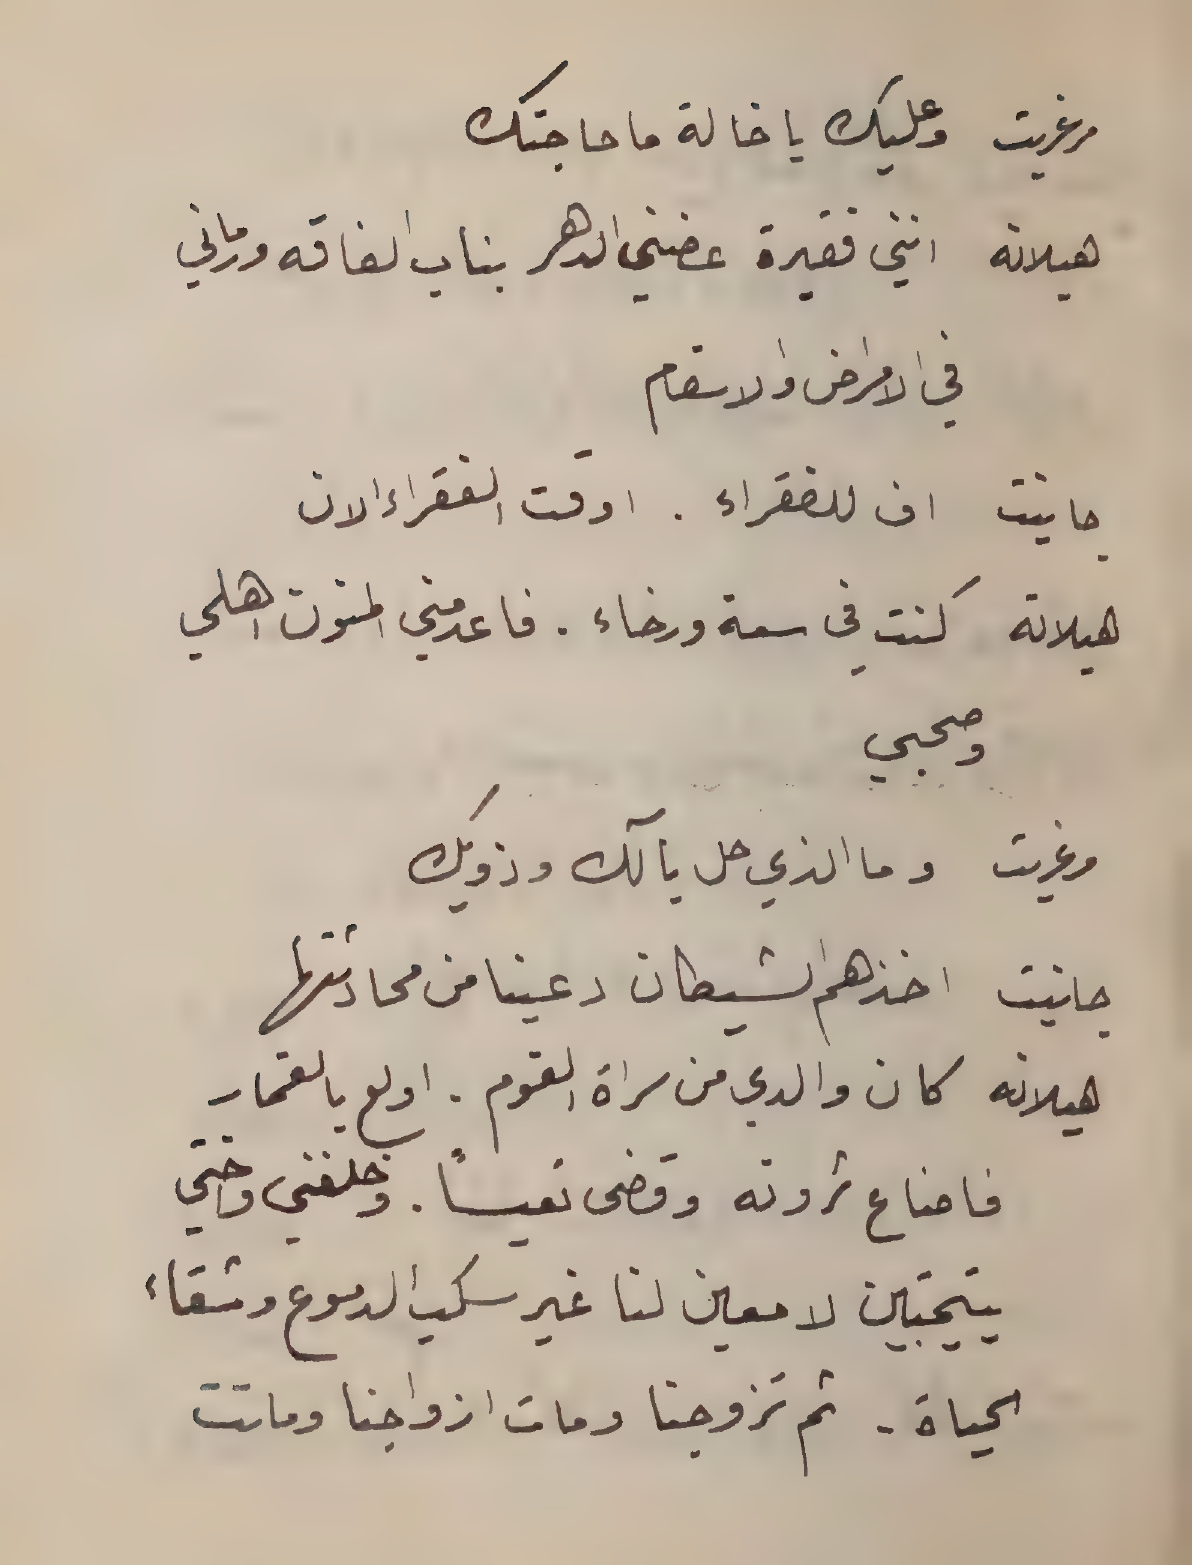 مرغريت وعليك يا خالة ما حاجتك
هيلانه انني فقيرة عضني الدهر بناب الفاقه ورماني
في الامراض والاسقام
جانيت اف للفقراء . اوقت الفقراء الان
هيلانة كنت في سعة ورخاء . فاعدمني المنون اهلي
وصحبي
مرغريت وما الذي حل بآلك وذويك
جانيت اخذهم الشيطان دعينا من محادثتها
هيلانه كان والدي من سراة القوم . اولع بالقمار
فاضاع ثروته وقضى تعيساً . وخلفني واختي
يتيمتين لا معين لنا غير سكب الدموع وشقاء
الحياة - ثم تزوجنا ومات ازواجنا وماتت